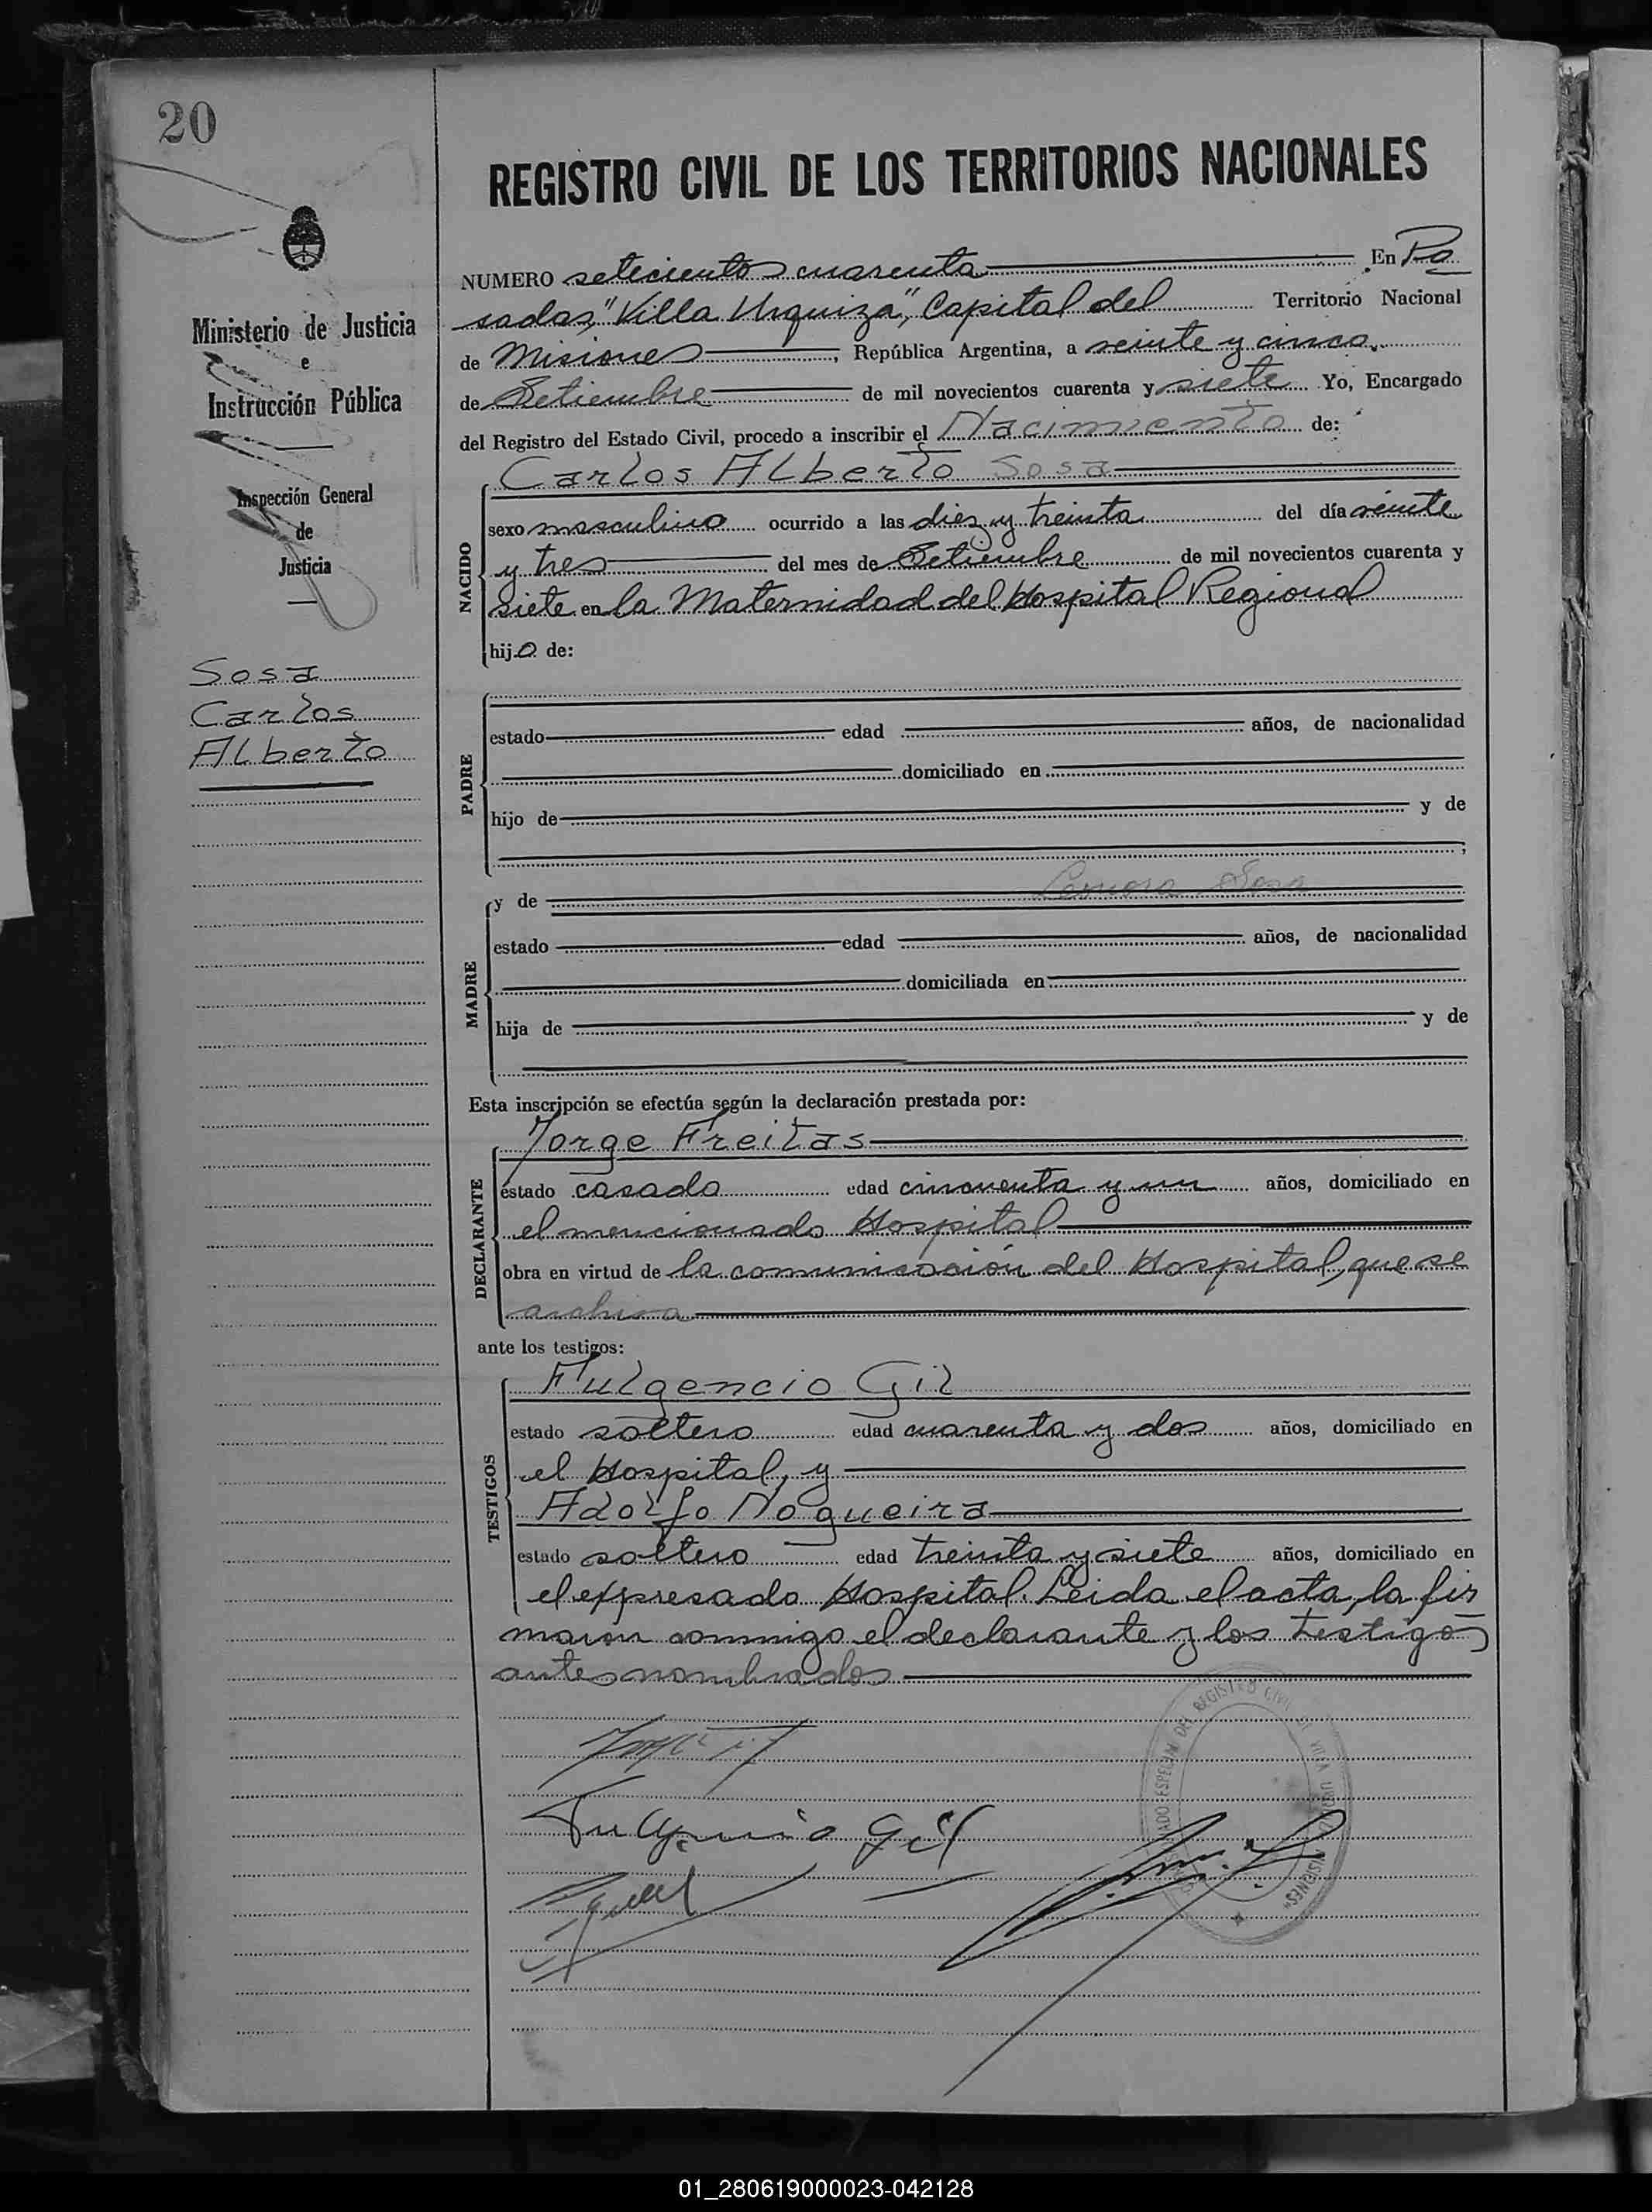 20
REGISTRO CIVIL DE LOS TERRITORIOS NACIONALES
Ministerio de Justicia
e
Instrucción Pública
Inspección General
de
Justicia
Sosa
Carlos
Alberto
NUMERO setecientos cuarenta En Po
sadas, "Villa Urquiza", Capital del Territorio Nacional
de Misiones, República Argentina, a veinte y cinco
de Setiembre de mil novecientos cuarenta y siete Yo, Encargado
del Registro del Estado Civil, procedo a inscribir el Nacimiento de:
Carlos Alberto Sosa
NACIDO
sexo masculino ocurrido a las diez y treinta del día veinte
y tres del mes de Setiembre de mil novecientos cuarenta y
siete en la Maternidad del Hospital Regional
hijo de:
PADRE
estado edad años, de nacionalidad
domiciliado en
hijo de y de
MADRE
y de Sosa
estado edad años, de nacionalidad
domiciliada en
hija de y de
Esta inscripción se efectúa según la declaración prestada por:
DECLARANTE
Jorge Freitas
estado casado edad cincuenta y un años, domiciliado en
el mencionado Hospital
obra en virtud de la comunicación del Hospital, que se
archiva
ante los testigos:
TESTIGOS
Fulgencio Gil
estado soltero edad cuarenta y dos años, domiciliado en
el Hospital, y
Adolfo Nogueira
estado soltero edad treinta y siete años, domiciliado en
el expresado Hospital. Leida el acta, la fir
maron conmigo el declarante y los testigos
antes nombrados
Fulgencio Gil
01_280619000023-042128